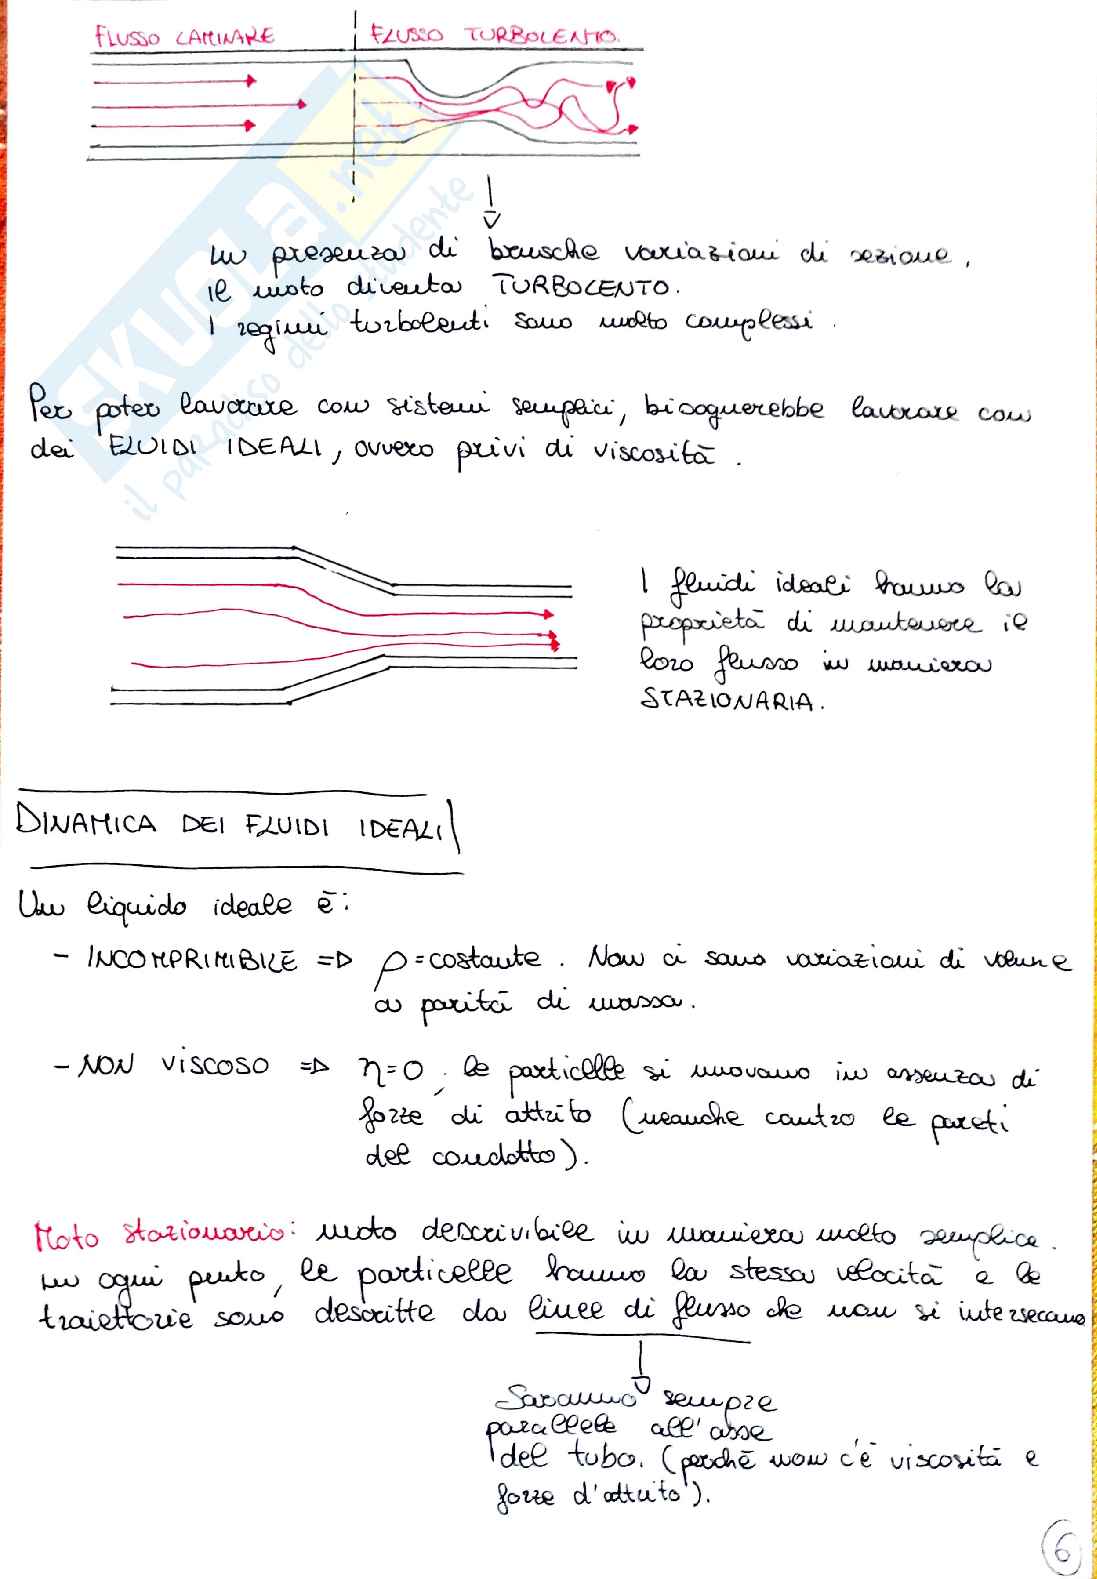 FLUSSO LAMINARE
FLUSSO TURBOLENTO.
In presenza di brusche variazioni di sezione,
il moto diventa TURBOLENTO.
I regimi turbolenti sono molto complessi.
Per poter lavorare con sistemi semplici, bisognerebbe lavorare con
dei FLUIDI IDEALI, ovvero privi di viscosità.
I fluidi ideali hanno la
proprietà di mantenere il
loro flusso in maniera
STAZIONARIA.
DINAMICA DEI FLUIDI IDEALI
Un liquido ideale è:
- INCOMPRIMIBILE => ρ=costante. Non ci sono variazioni di volume
a parità di massa.
- NON VISCOSO => η=0, le particelle si muovono in assenza di
forze di attrito (neanche contro le pareti
del condotto).
Moto stazionario: moto descrivibile in maniera molto semplice.
In ogni punto, le particelle hanno la stessa velocità e le
traiettorie sono descritte da linee di flusso che non si intersecano
Saranno sempre
parallele all'asse
del tubo. (perché non c'è viscosità e
forze d'attrito).
6
SKUOLA.net
il paradiso dello studente